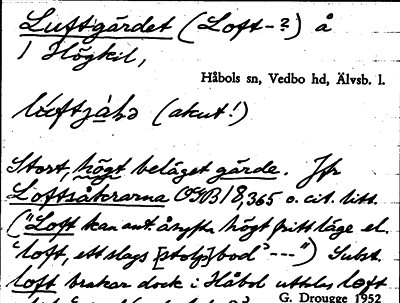 Luftgärdet (Loft-?) å
1 Högkil,
Håbols sn, Vedbo hd, Älvsb. l.
(akut!)
Stort, högt beläget gärde. Jfr
Loftsåkrarna OGB 18,365 o. cit. litt.
("Loft kan ant. åsyfta högt fritt läge el.
'loft, ett slags [stolp]bod' ---") Subst.
loft brukar dock i Håbol uttalas
G. Drougge 1952